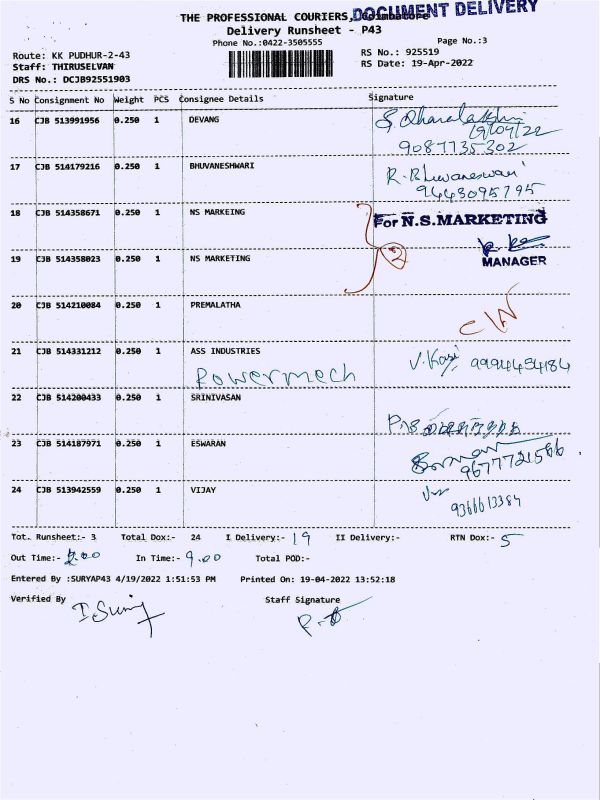 THE PROFESSIONAL COURIERS, Coimbatore
DOCUMENT DELIVERY
Delivery Runsheet - P43
Phone No.:0422-3505555
Page No.:3
Route: KK PUDHUR-2-43
RS No.: 925519
Staff: THIRUSELVAN
RS Date: 19-Apr-2022
DRS No.: DCJB92551903
S No Consignment No Weight PCS Consignee Details Signature
16 CJB 513991956 0.250 1 DEVANG
19/04/22
9087735302
17 CJB 514179216 0.250 1 BHUVANESHWARI R. Bhuvaneswari
9443095795
18 CJB 514358671 0.250 1 NS MARKEING For N.S.MARKETING
2
19 CJB 514358023 0.250 1 NS MARKETING MANAGER
20 CJB 514210084 0.250 1 PREMALATHA
21 CJB 514331212 0.250 1 ASS INDUSTRIES V. Kasi 9994454184
Powermech
22 CJB 514200433 0.250 1 SRINIVASAN
23 CJB 514187971 0.250 1 ESWARAN
9677721566
24 CJB 513942559 0.250 1 VIJAY
9366613384
Tot. Runsheet:- 3 Total Dox:- 24 I Delivery:- 19 II Delivery:- RTN Dox:- 5
Out Time:- 2.00 In Time:- 9.00 Total POD:-
Entered By :SURYAP43 4/19/2022 1:51:53 PM Printed On: 19-04-2022 13:52:18
Verified By Staff Signature